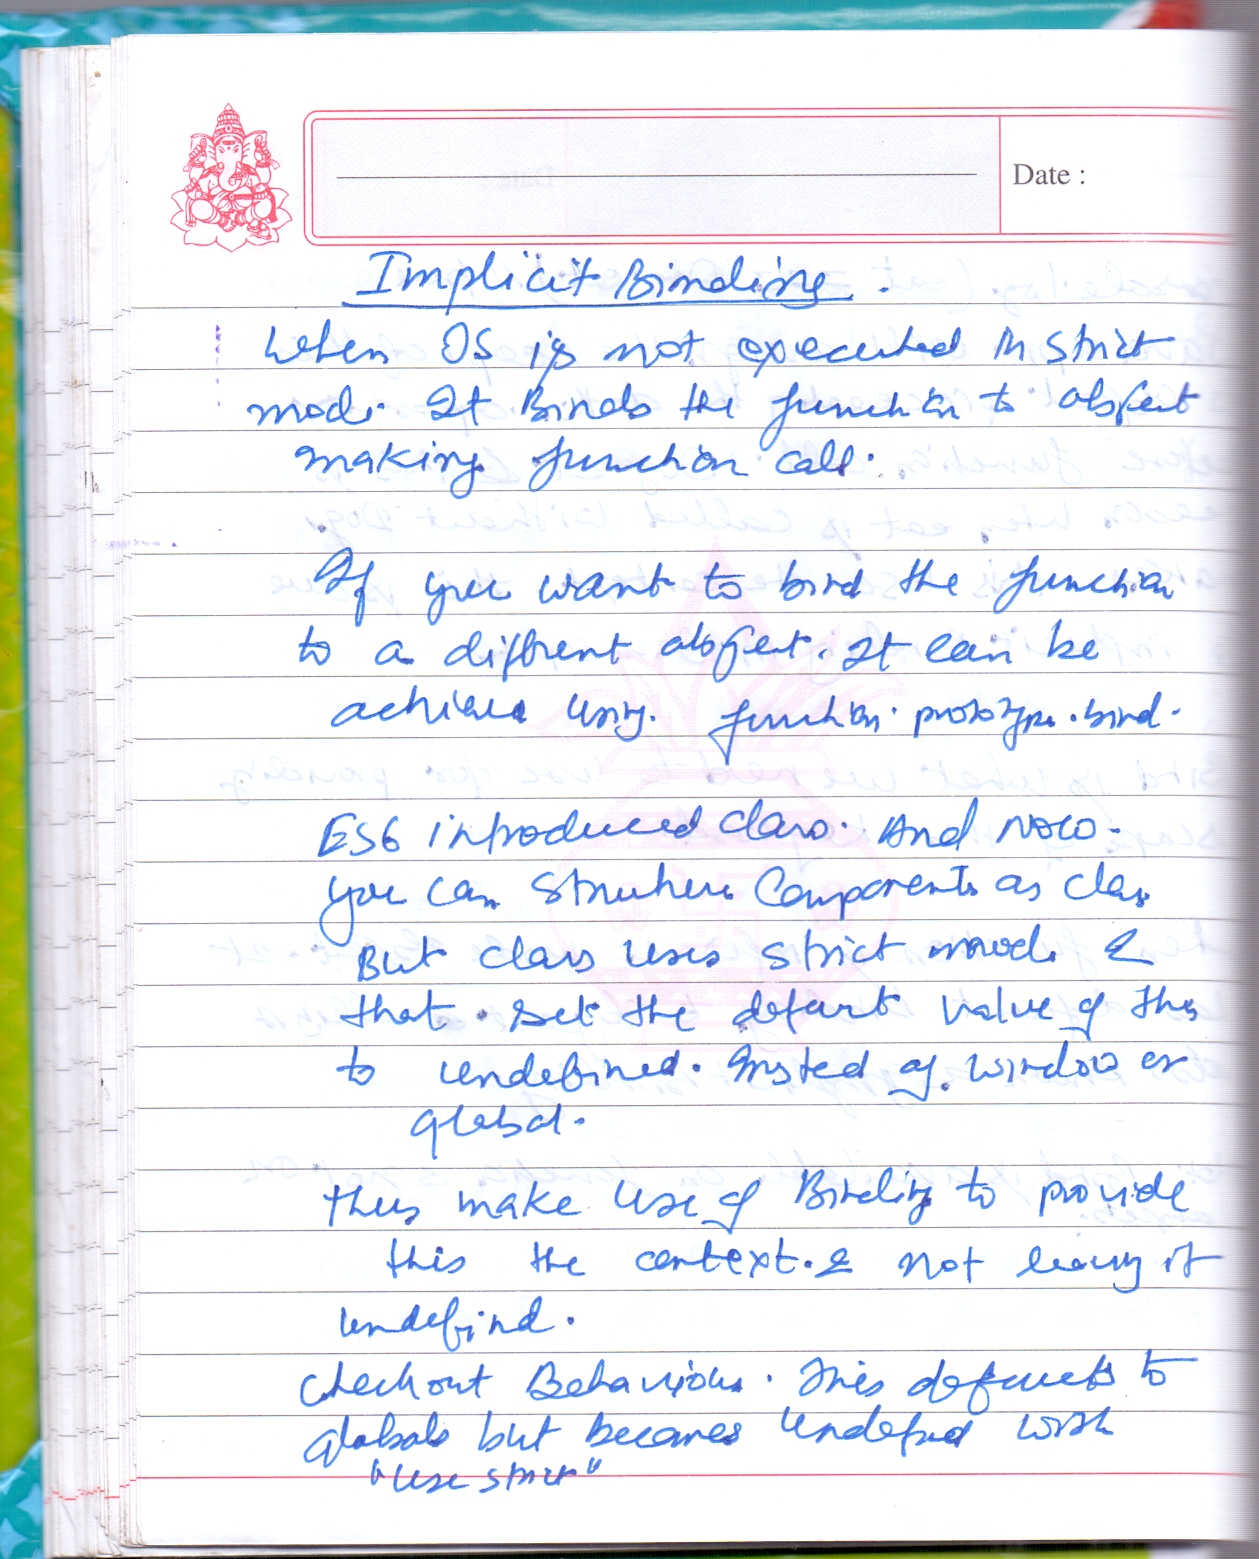 Date :
Implicit Binding.
When JS is not executed in strict
mode. It Binds the function to object
making function call.
If you want to bind the function
to a diffrent object. It can be
achieved using. function.prototype.bind.
ES6 introduced class. And Now.
you can structure Components as class
But class uses strict mode &
that. set the default value of this
to undefined. Insted of. window or
global.
Thus make use of Binding to provide
this the context. & not leaving it
undefind.
Checkout Behaviour. This defaults to
globals but becomes undefined with
"use strict"